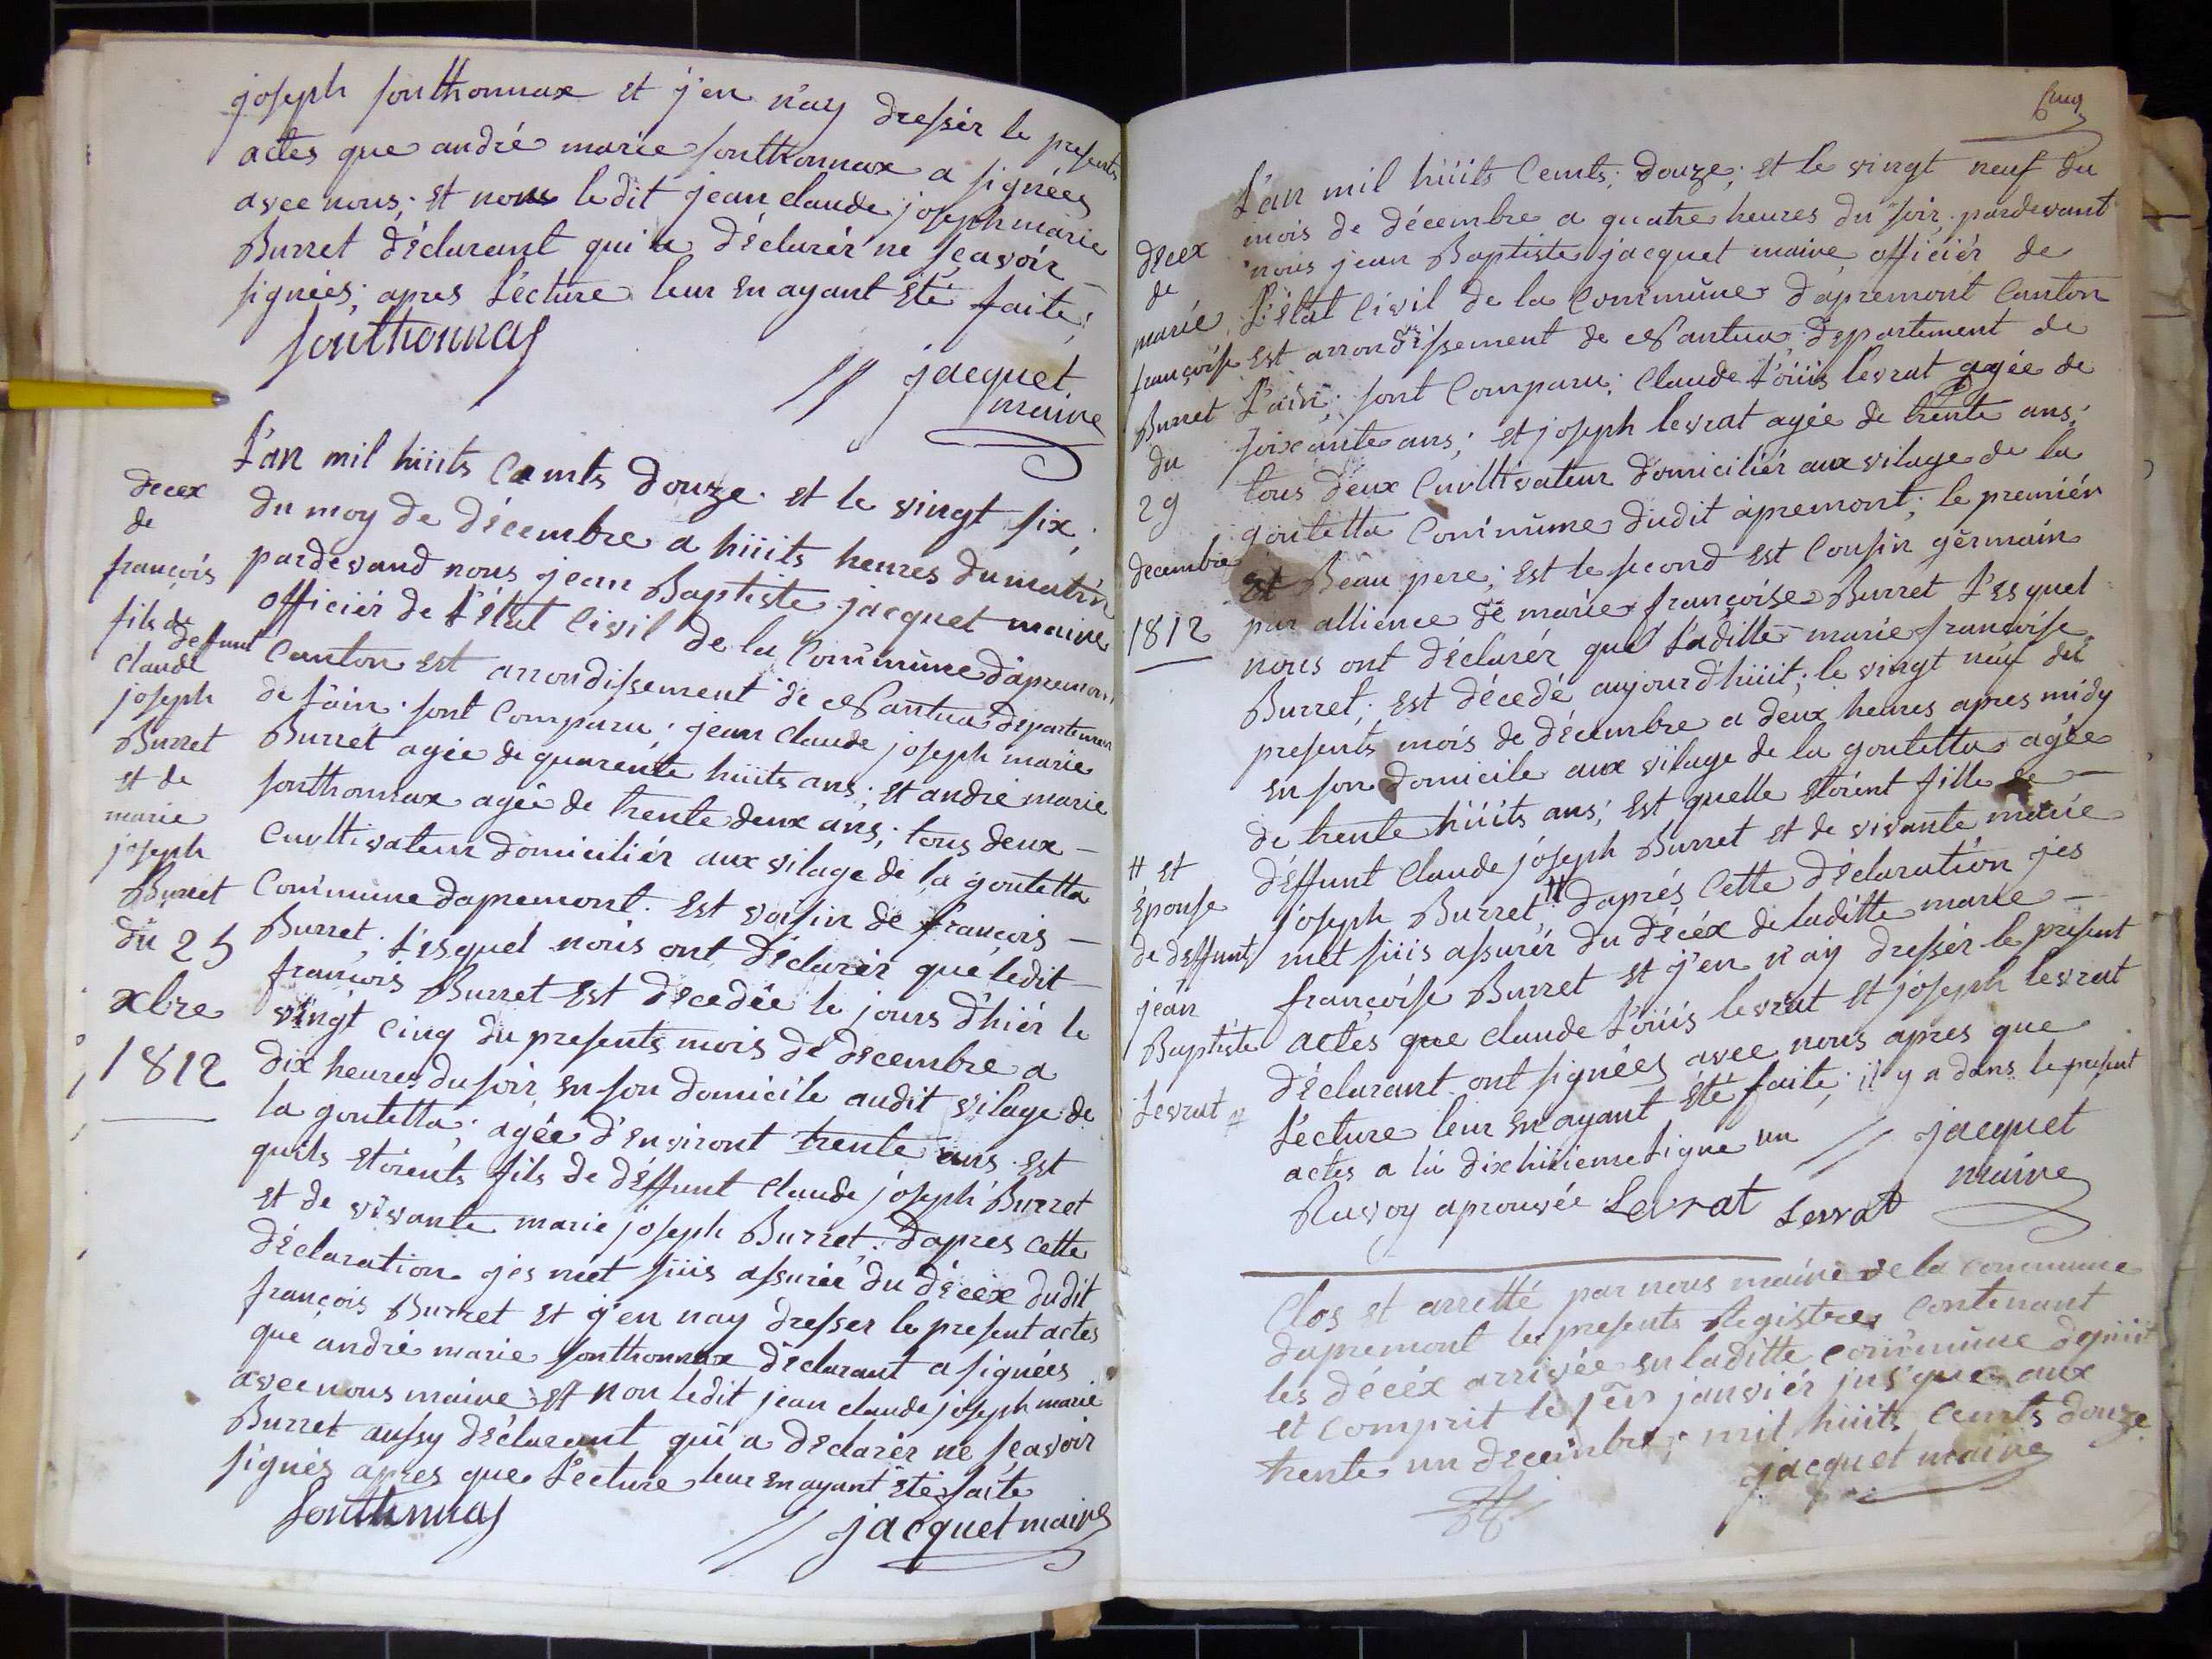 joseph sonthonnax et j'en n'ay dressér le presents
actes que andré marie sonthonnax a signées
avec nous; et nons ledit jean claude joseph marie
Burret déclarant qui a déclarér ne sçavoir
signées; apres Lécture leur en ayant été faite;
sonthonnax
jacquet
maire
decex
de
françois
fils de
deffunt
claude
joseph
Burret
et de
marie
joseph
Burret
du 25
xbre
1812
L'an mil hüits Cemts douze. et le vingt six;
du moy de décembre a hüits heures du matin
pardevand nous jean Baptiste jacquet maire
officiér de L'état Civil de la Commune dapremont
Canton est arrondissement de Nantua departement
de L'ain. sont Comparu; jean Claude joseph marie
Burret agée de quarente hüits ans; et andré marie
sonthonnax agée de trente deux ans; tous deux
Cuvltivateur domiciliér aux vilage de la goutetta
Commune dapremont. Est voisin de françois
Burret; Lesquel nous ont déclarér que ledit
françois Burret Est décedée le jours d'hiér le
vingt cinq du presents mois de decembre a
dix heures du soir en son domicile audit vilage de
la goutetta; agée d'environt trente ans. Est
quils etoients fils de déffunt Claude joseph Burret
et de vivante marie joseph Burret. dapres cette
déclaration jes met süis assurée du décéx dudit
françois Burret et j'en nay dresser le present actes
que andré marie sonthonnax déclarant a signées
avec nous maire; et non ledit jean claude joseph marie
Burret aussy déclarant qui a declarér ne sçavoir
signés apres que Lécture leur en ayant été faite
sonthonnax
jacquet maire
Cinq
decex
de
marie
françoise
Burret
du
29
decembre
1812
L'an mil hüits Cemts; douze; et le vingt neuf du
mois de décembre a quatre heures du soir pardevant
nous jean Baptiste jacquet maire officiér de
L'état Civil de la Commune dapremont Canton
Est arrondissement de Nantua departement de
L'ain; sont Comparu; Claude Loüis levrat agée de
soixante ans; et joseph levrat agée de trente ans;
tous deux Cuvltivateur domiciliér aux vilage de la
goutetta Commune dudit apremont; le premiér
Est Beau pere; est le second est Cousin germain
par allience de marie françoise Burret Lesquel
nous ont déclarér que Laditte marie françoise
Burret; est décedé aujourd'hüit; le vingt neuf du
presents mois de décembre a deux heures apres midy
en son domicile aux vilage de la goutetta agée
de trente hüits ans; est quelle étoient fille de
déffunt Claude joseph Burret et de vivante marie
joseph Burret # daprés Cette déclaration jes
met süis assurér du décéx de laditte marie
françoise Burret et j'en n'ay dressér le present
actes que Claude Loüis levrat et joseph levrat
déclarant ont signées avec nous apres que
Lécture leur en ayant été faite; il y a dans le present
actes a la dix hüitieme Ligne un
Ravoy aprouvée Levrat Levrat
# et
épouse
de deffunt
jean
Baptiste
Levrat #
jacquet
maire
Clos et arretté par nous maire de la commune
dapremont le presents Registre Contenant
les décéx arrivée en laditte commune depüit
et comprit le 1er janviér jusque aux
trente un decembre mil hüits Cemts douze
jacquet maire